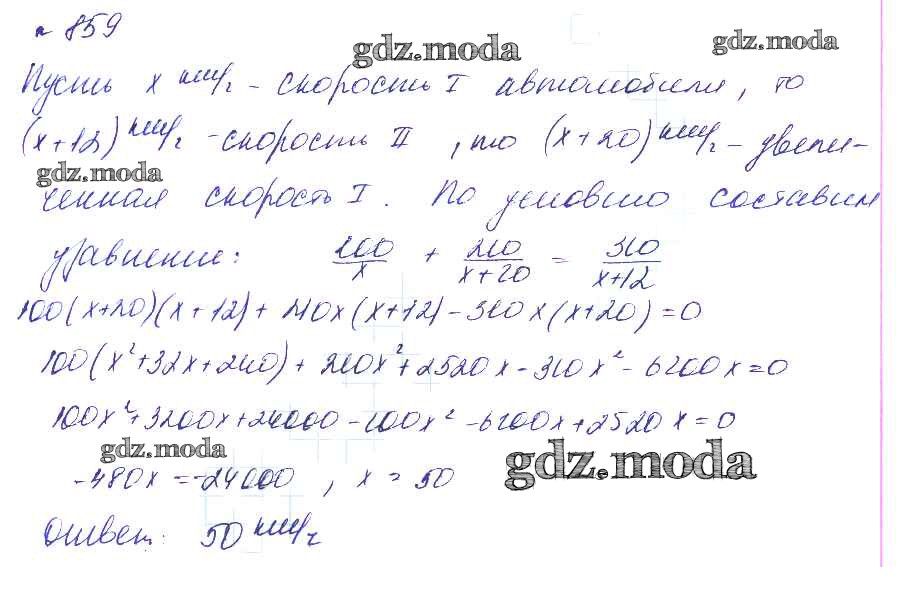 № 859
gdz.moda
gdz.moda
Пусть x км/ч - скорость I автомобиля, то
(x+12) км/ч - скорость II, то (x+20) км/ч - увели-
gdz.moda
ченная скорость I. По условию составим
уравнение: 100/x + 210/(x+20) = 310/(x+12)
100(x+20)(x+12) + 210x(x+12) - 310x(x+20) = 0
100(x²+32x+240) + 210x² + 2520x - 310x² - 6200x = 0
100x² + 3200x + 24000 - 100x² - 6200x + 2520x = 0
gdz.moda
gdz.moda
-480x = -24000, x = 50
Ответ: 50 км/ч